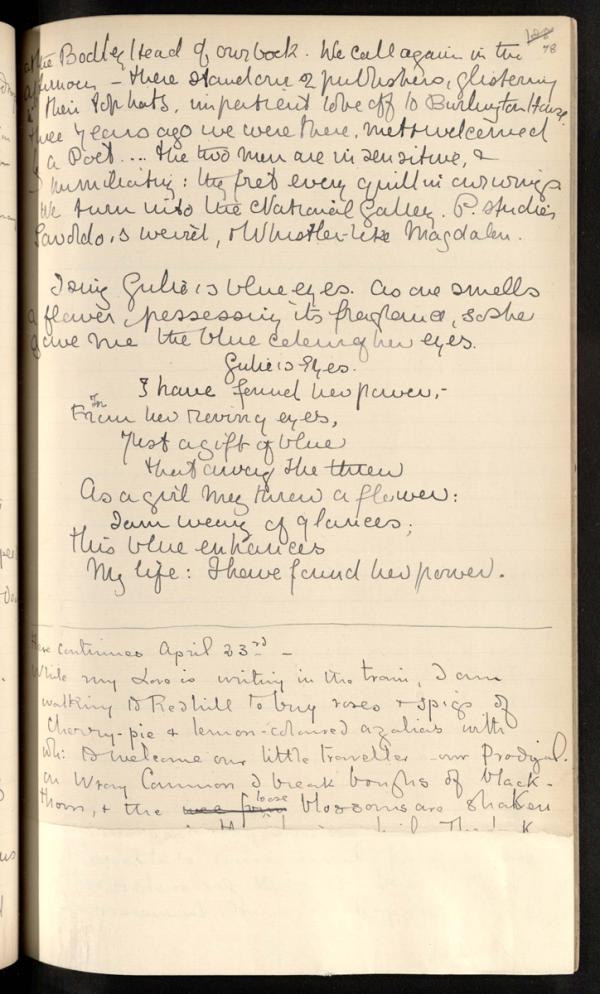 188
78
at the Bodley Head of our book. We call again in the
afternoon – there stand one or 2 publishers, glistening
in their top hats, impatient to be off to Burlington House.
three years ago we were there, met & welcomed
by a Poet.... the two men are insensitive, &
humiliating: they fret every quill in our wings
We turn into the National Gallery. P. studies
Savoldo's weird, & Whistler-like Magdalen.
I sing Julie's blue eyes. As one smells
a flower, possessing its fragrance, so she
gave me the blue coloring of her eyes.
Julie's Eyes.
I have found her power,-
From her roving eyes,
Just a gift of blue
That away she threw
As a girl may throw a flower:
I am weary of glances;
This blue enhances
My life: I have found her power.
Here continues April 23rd –
While my Love is writing in the train, I am
walking to Redhill to buy roses & spigs of
cherry-pie & lemon-coloured azalias with
whi: to welcome our little traveller – our Prodigal.
on Wray Common I break boughs of black-
thorn, & the loose blossoms are shaken